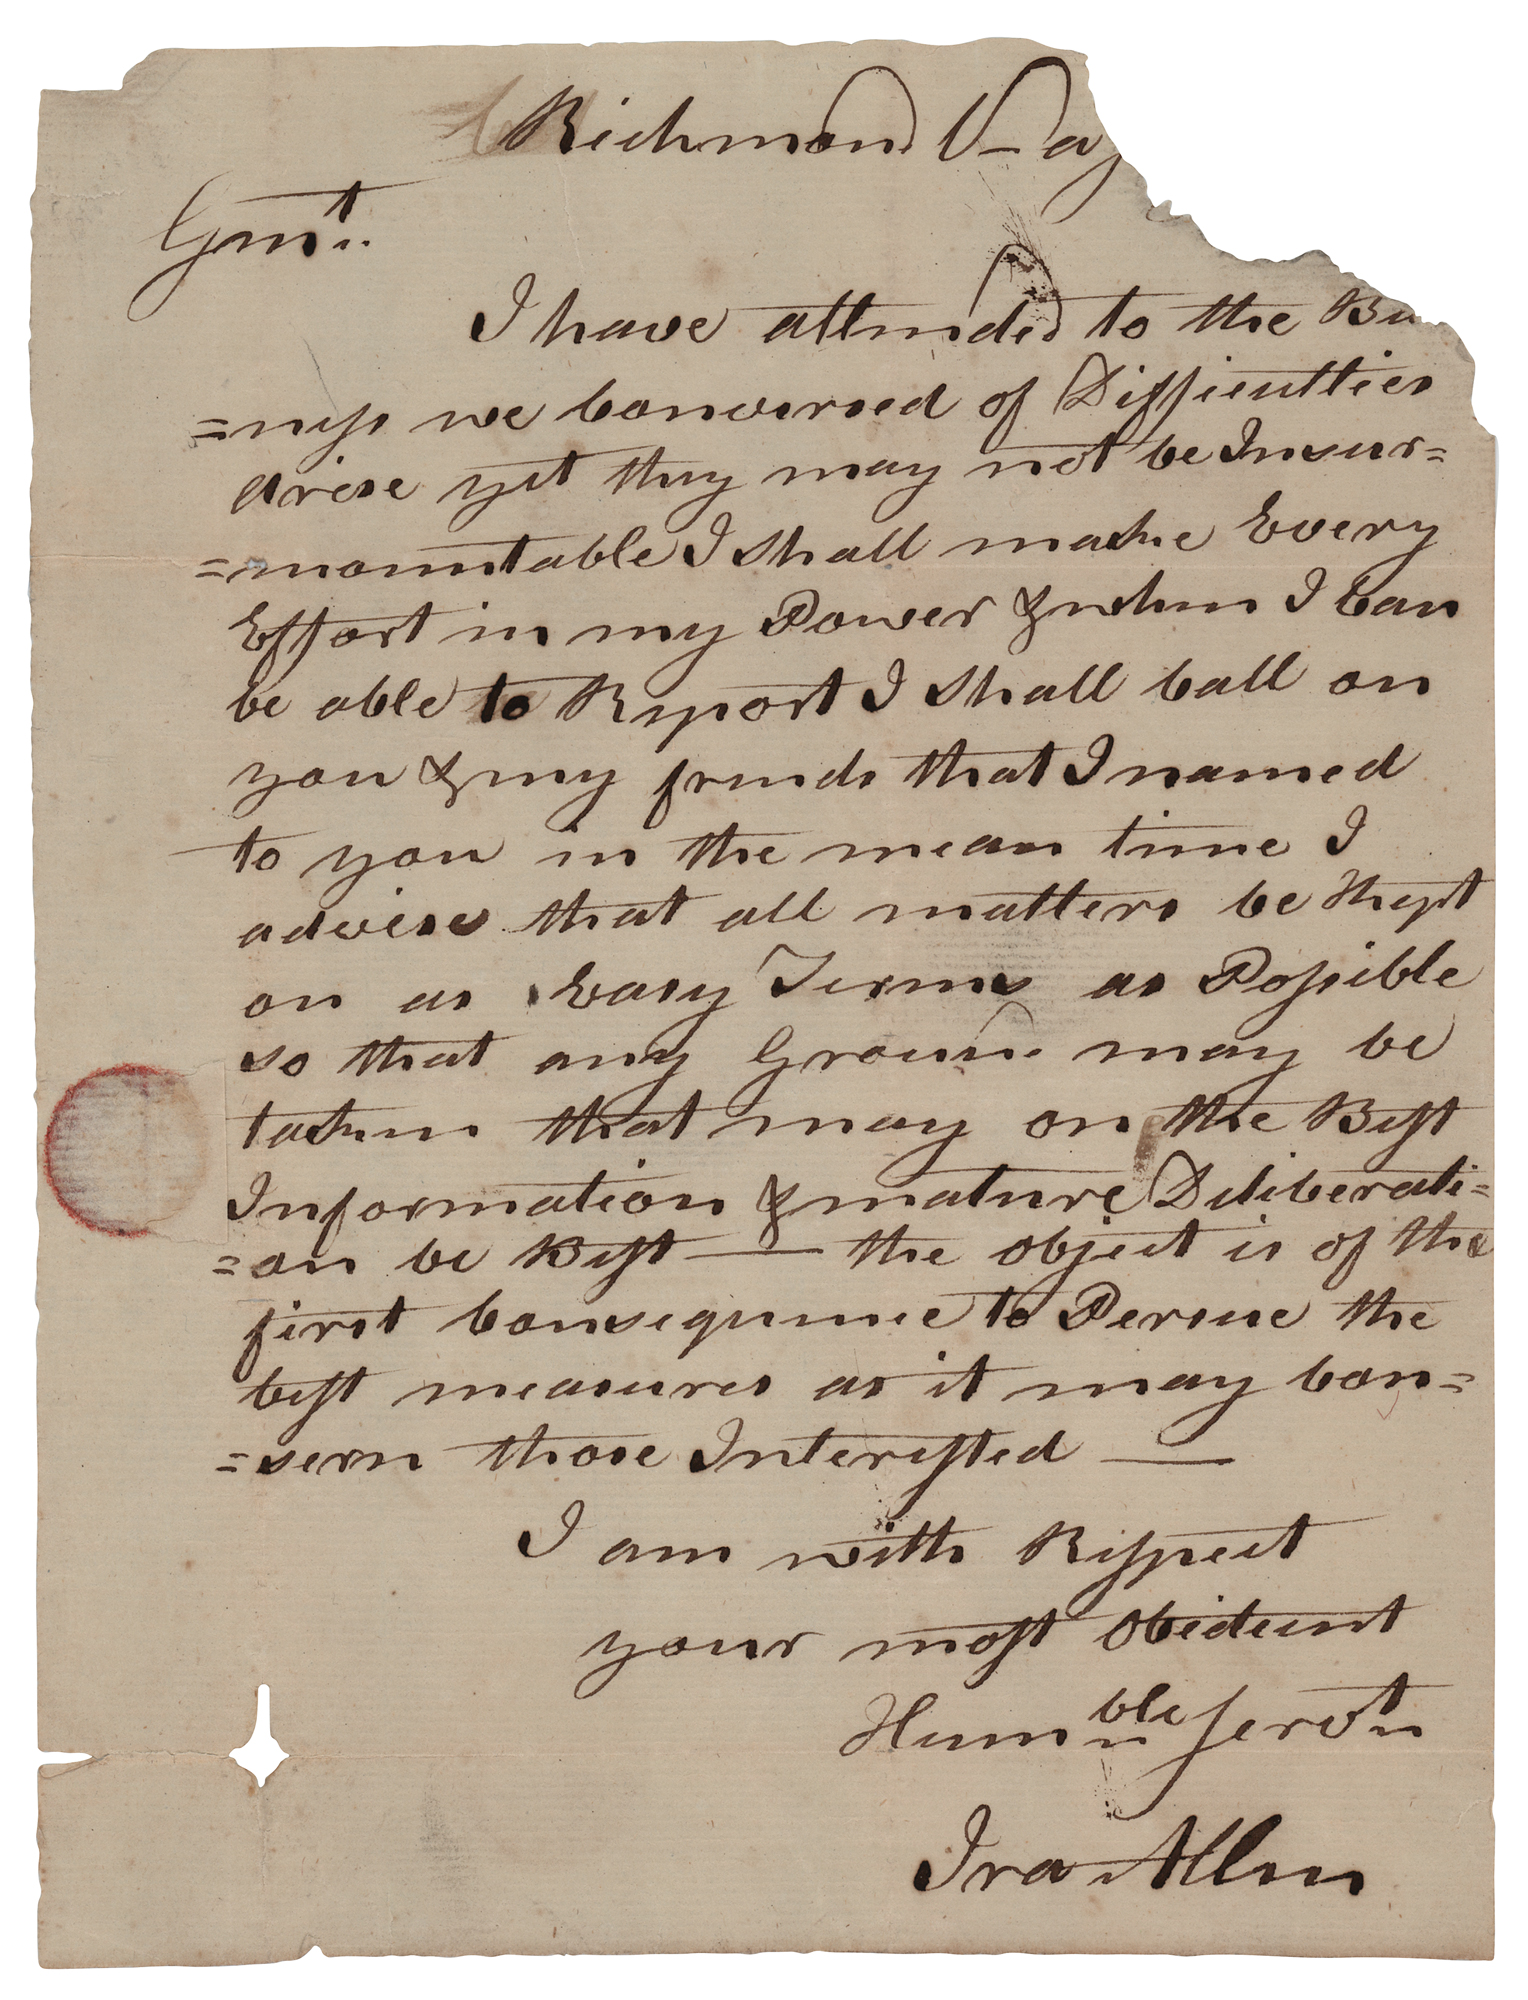 Richmond
Gmt
I have attended to the Bu
=ness we Conversed of Difficulties
arise yet they may not be Insur=
=mountable I Shall make Every
Effort in my Power & when I Can
be able to Report I Shall Call on
you & my frends that I named
to you in the mean time I
advise that all matters be Kept
on as Easy Terms as Possible
so that any Ground may be
taken that may on the Best
Information & mature Deliberati=
=on be Best — the object is of the
first Consequence to Persue the
best measures as it may Con=
=sern those Interested —
I am with Respect
your most Obedient
Humble Servt
Ira Allen